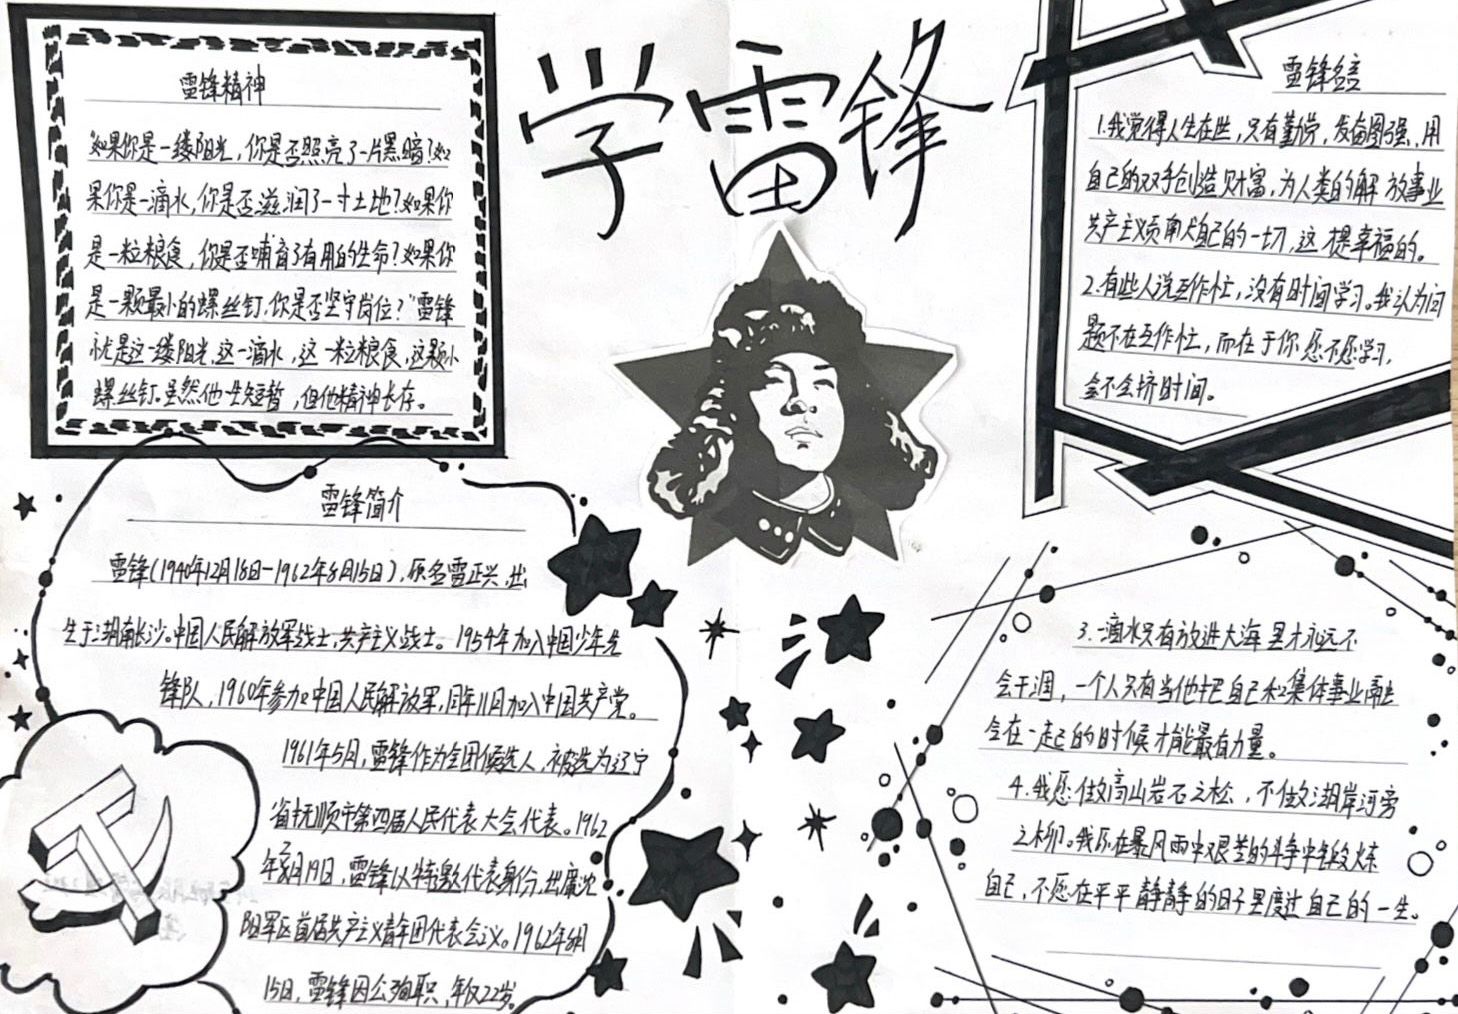 学雷锋
雷锋精神
"如果你是一缕阳光,你是否照亮了一片黑暗?如
果你是一滴水,你是否滋润了一寸土地?如果你
是一粒粮食,你是否哺育了有用的生命?如果你
是一颗最小的螺丝钉,你是否坚守岗位?"雷锋
就是这一缕阳光,这一滴水,这一粒粮食,这颗小
螺丝钉。虽然他一生短暂,但他精神长存。
雷锋名言
1.我觉得人生在世,只有勤劳,发奋图强,用
自己的双手创造财富,为人类的解放事业
共产主义贡献自己的一切,这是幸福的。
2.有些人说工作忙,没有时间学习。我认为问
题不在工作忙,而在于你愿不愿学习,
会不会挤时间。
雷锋简介
雷锋(1940年12月18日—1962年8月15日),原名雷正兴,出
生于湖南长沙。中国人民解放军战士,共产主义战士。1954年加入中国少年先
锋队,1960年参加中国人民解放军,同年11月加入中国共产党。
1961年5月,雷锋作为全团候选人,被选为辽宁
省抚顺市第四届人民代表大会代表。1962
年2月19日,雷锋以特邀代表身份,出席沈
阳军区首届共产主义青年团代表会议。1962年8月
15日,雷锋因公殉职,年仅22岁。
3.一滴水只有放进大海里才永远不
会干涸,一个人只有当他把自己和集体事业融
会在一起的时候才能最有力量。
4.我愿做高山岩石之松,不做湖岸河旁
之柳。我愿在暴风雨中艰苦的斗争中锻炼
自己,不愿在平平静静的日子里度过自己的一生。